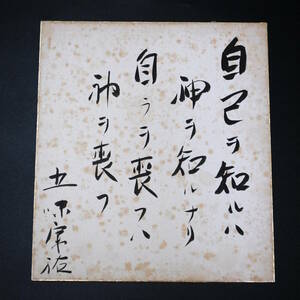 自己ヲ知ルハ
神ヲ知ルナリ
自ラヲ喪フハ
神ヲ喪フ
五味康祐